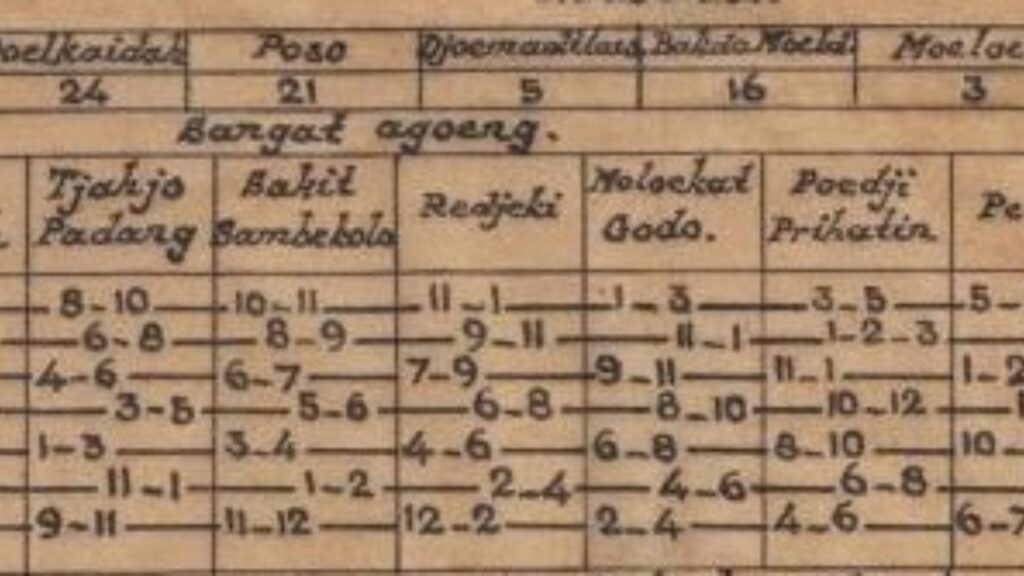 Poso Djoemadilais Bakdo Moeld
24 21 5 16 3
Sangat agoeng.
Tjahjo Sakit Redjeki Noloekat Poedji
Padang Sambekolo Godo. Prihatin
8-10 10-11 11-1 1-3 3-5 5-
6-8 8-9 9-11 11-1 1-2-3
4-6 6-7 7-9 9-11 11-1 1-2
3-5 5-6 6-8 8-10 10-12 1
1-3 3-4 4-6 6-8 8-10 10
11-1 1-2 2-4 4-6 6-8
9-11 11-12 12-2 2-4 4-6 6-7